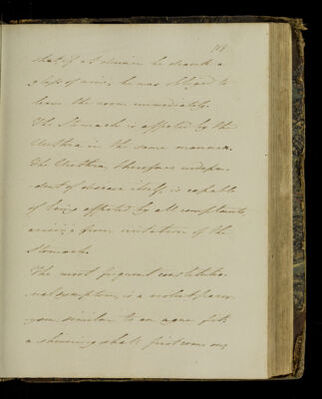 that if at dinner he drank a
glass of wine, he was obliged to
leave the room immediately.
The Stomach is affected by the
Urethra in the same manner.
The Urethra, therefore indepen
dent of disease itself, is capable
of being affected by all complaints
arising from irritation of the
Stomach.
The most frequent constitutio
nal symptom, is a violent parox
ysm similar to an ague fit
a shivering shall first come on,